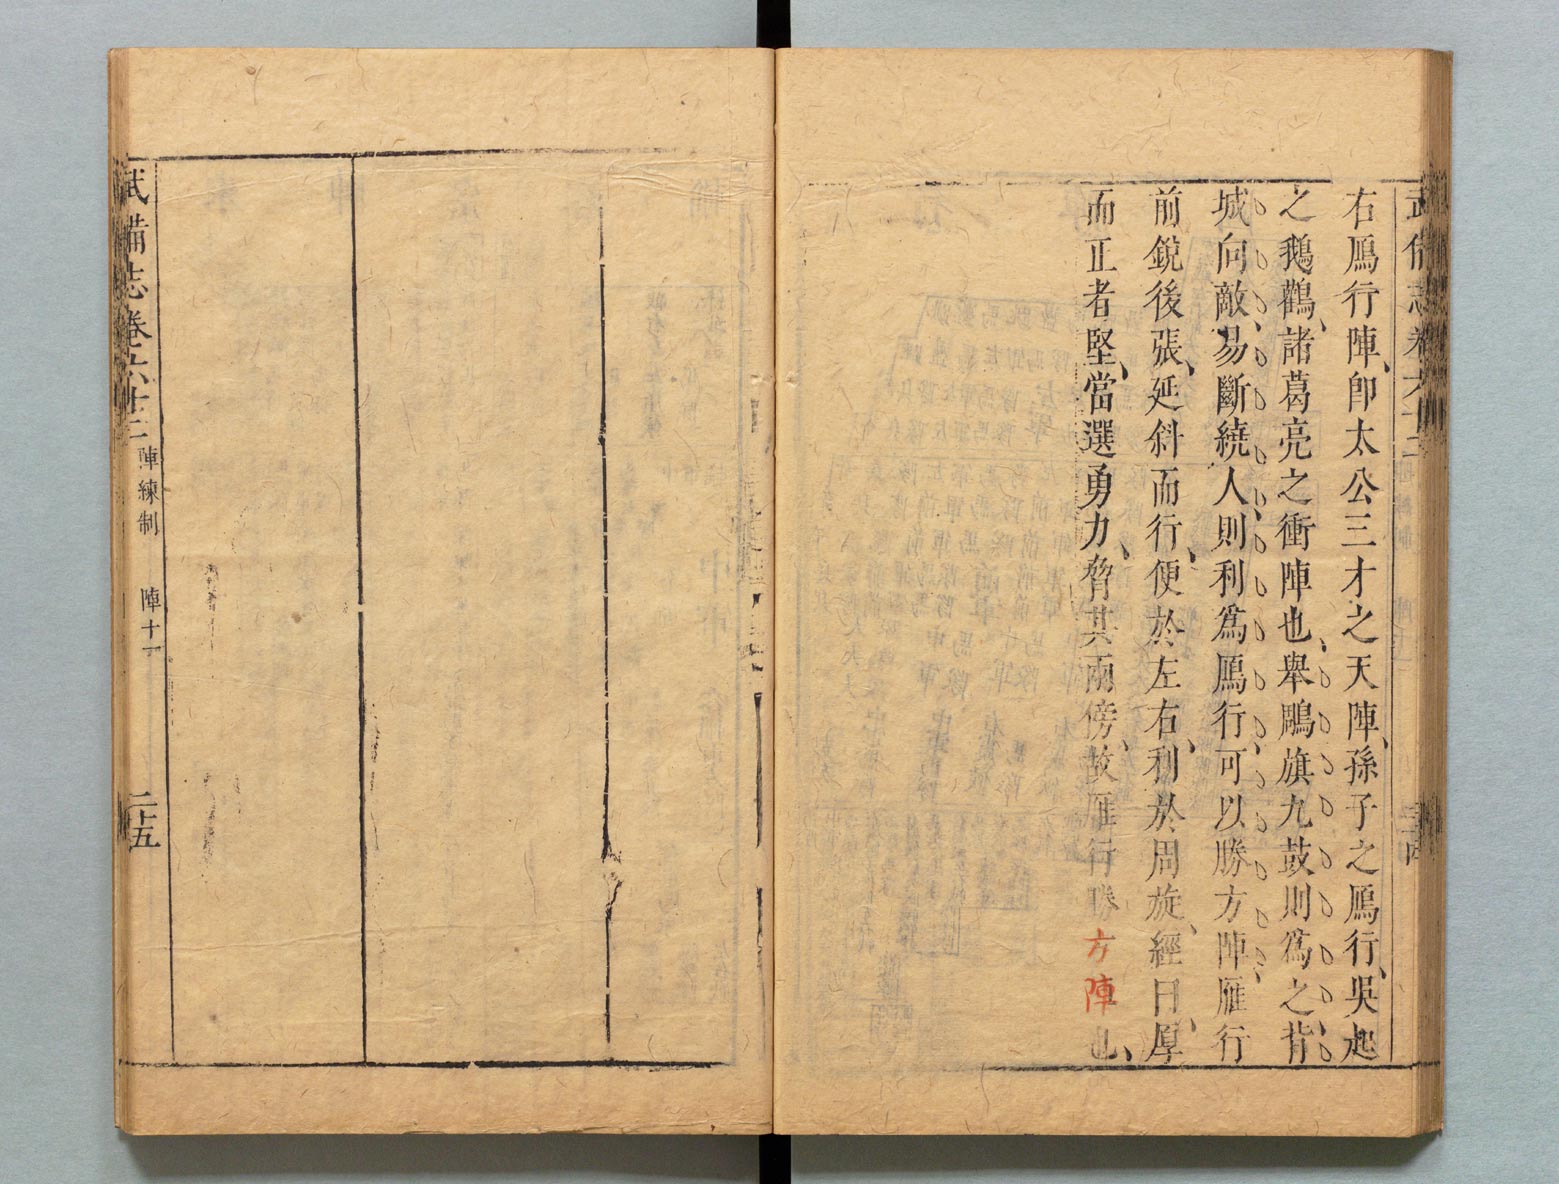 武備志卷六十三
右鴈行陣、卽太公三才之天陣、孫子之鴈行、吳起
之鵝鸛、諸葛亮之衝陣也、舉鵰旗九鼓則爲之、背
城向敵、易斷繞人、則利爲鴈行、可以勝方陣、雁行
前銳後張、延斜而行、便於左右、利於周旋、經曰、厚
而正者堅、當選勇力、脅其兩傍、故雁行勝方陣也、
武備志卷六十三 陣練制 陣十一 二十五